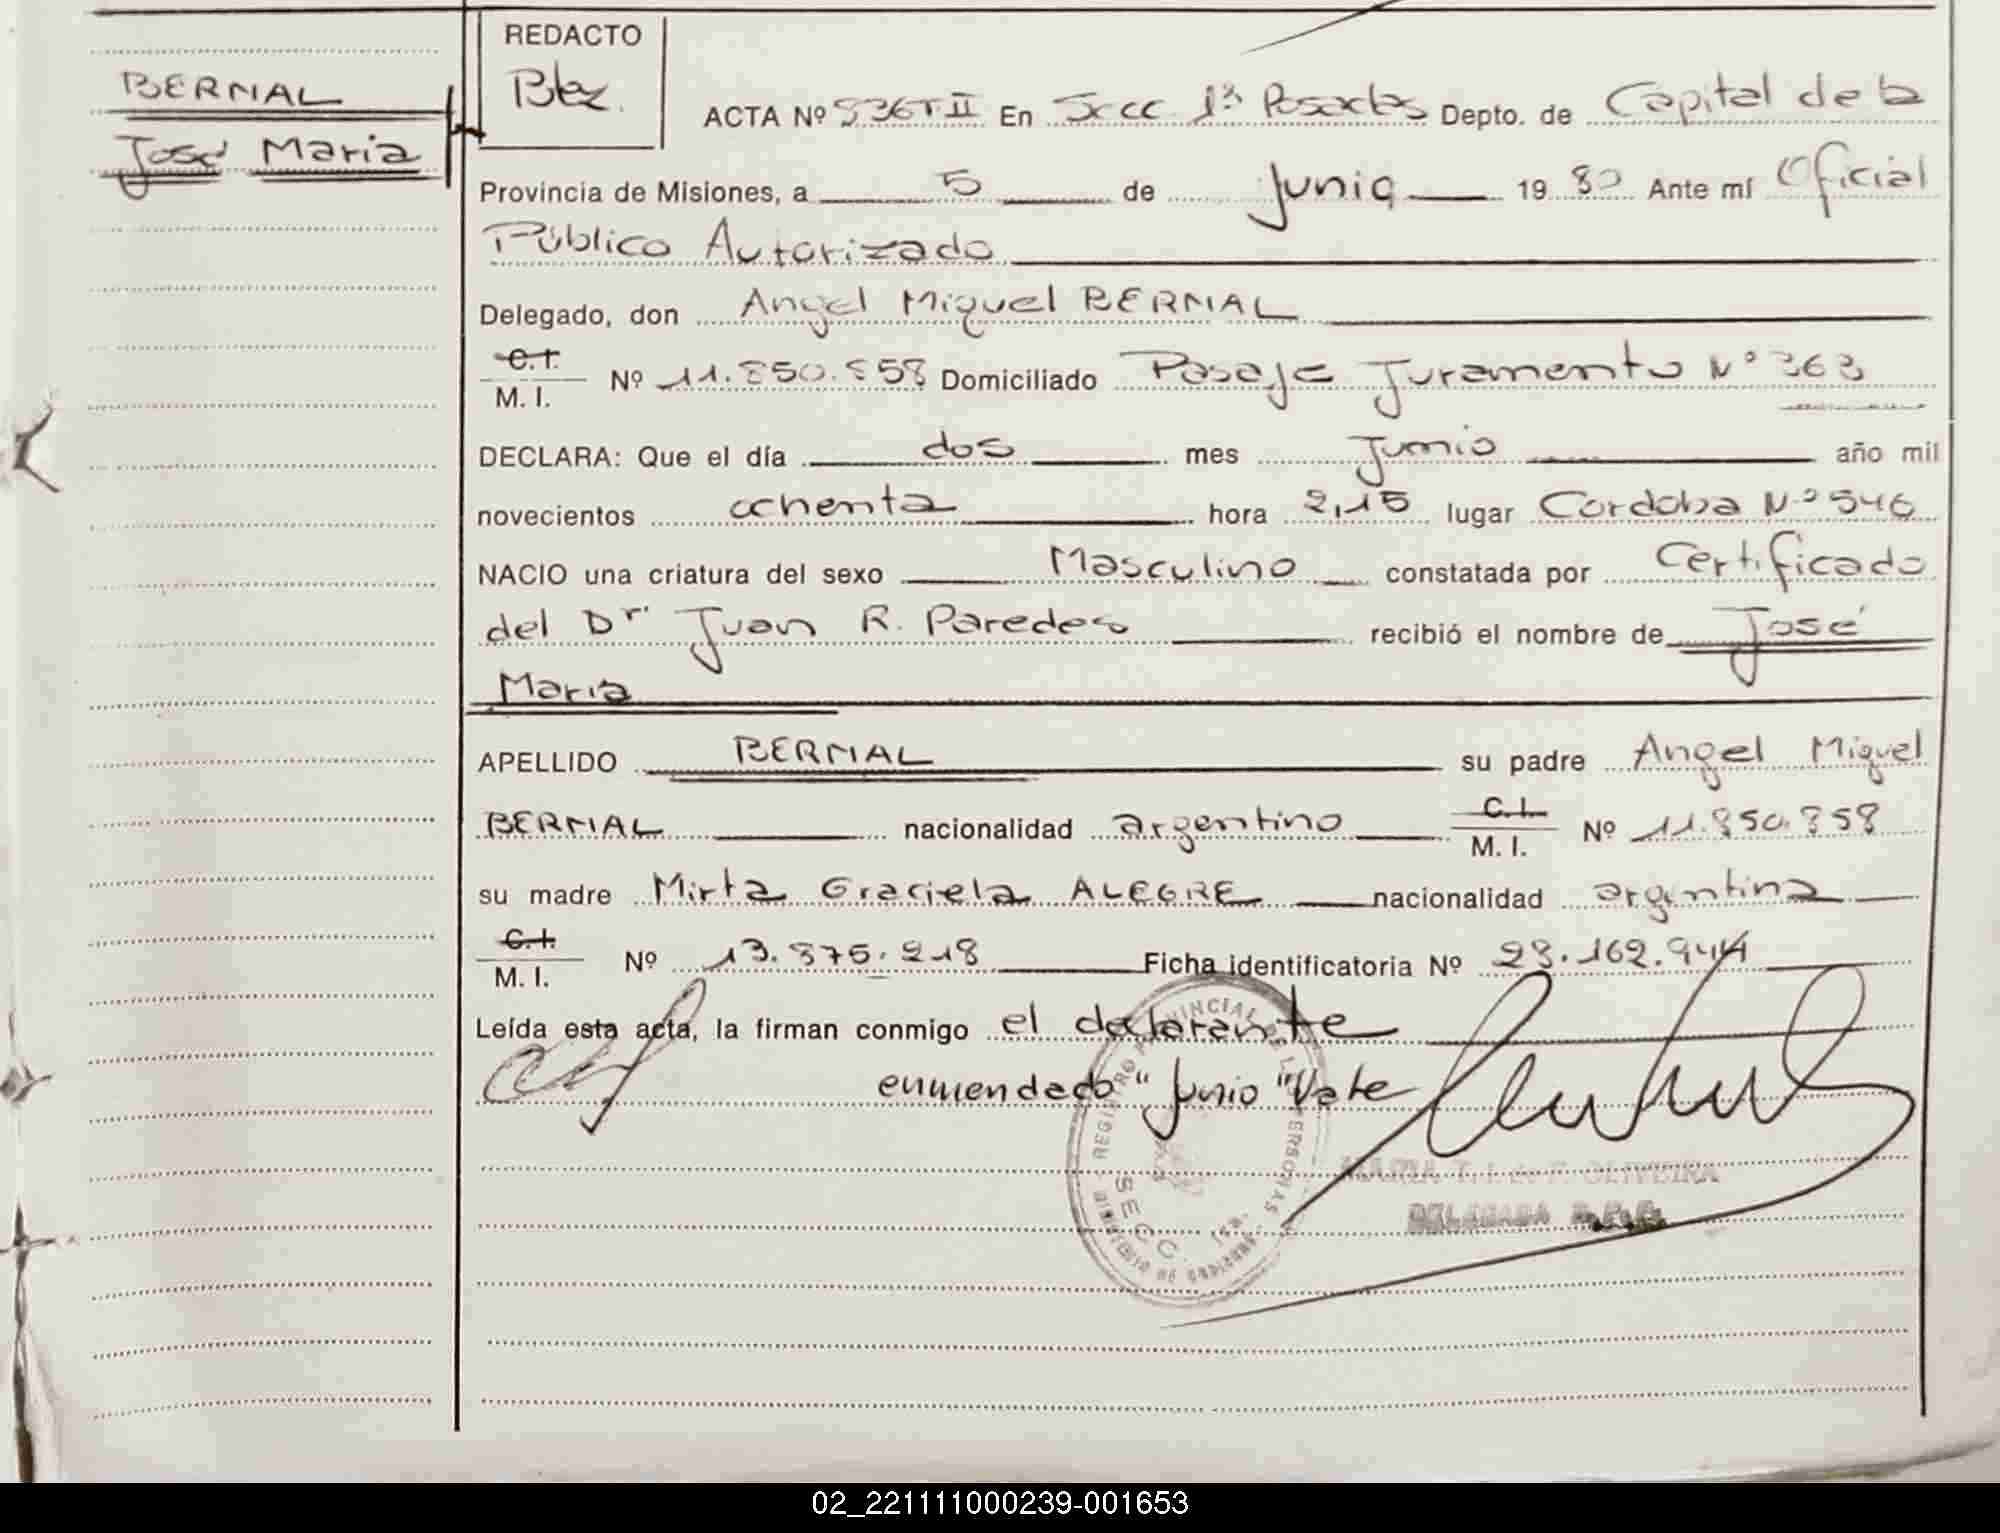 BERNAL
José Maria
REDACTO
Btez.
ACTA Nº 536 T. II En Secc. 1ª Posadas Depto. de Capital de la
Provincia de Misiones, a 5 de Junio 19 80 Ante mí Oficial
Público Autorizado
Delegado, don Angel Miguel BERNAL
C.I.
M. I. Nº 11.850.858 Domiciliado Pasaje Juramento Nº 363
DECLARA: Que el día dos mes Junio año mil
novecientos ochenta hora 2,15 lugar Cordoba Nº 546
NACIO una criatura del sexo Masculino constatada por Certificado
del Dr Juan R. Paredes recibió el nombre de José
Maria
APELLIDO BERNAL su padre Angel Miguel
BERNAL nacionalidad argentino C.I.
M. I. Nº 11.850.858
su madre Mirta Graciela ALEGRE nacionalidad argentina
C.I.
M. I. Nº 13.375.218 Ficha identificatoria Nº 28.162.944
Leída esta acta, la firman conmigo el declarante
enmendado "Junio" Vale
REGISTRO PROVINCIAL DE LAS PERSONAS
SECC. 1ra.
MINISTERIO DE GOBIERNO
MARIA T. de OLIVEIRA
DELEGADA R.P.P.
02_221111000239-001653